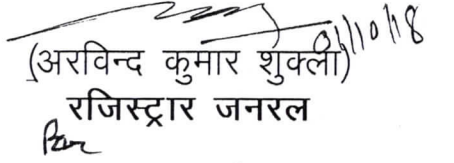 01/10/18
(अरविन्द कुमार शुक्ला)
रजिस्ट्रार जनरल